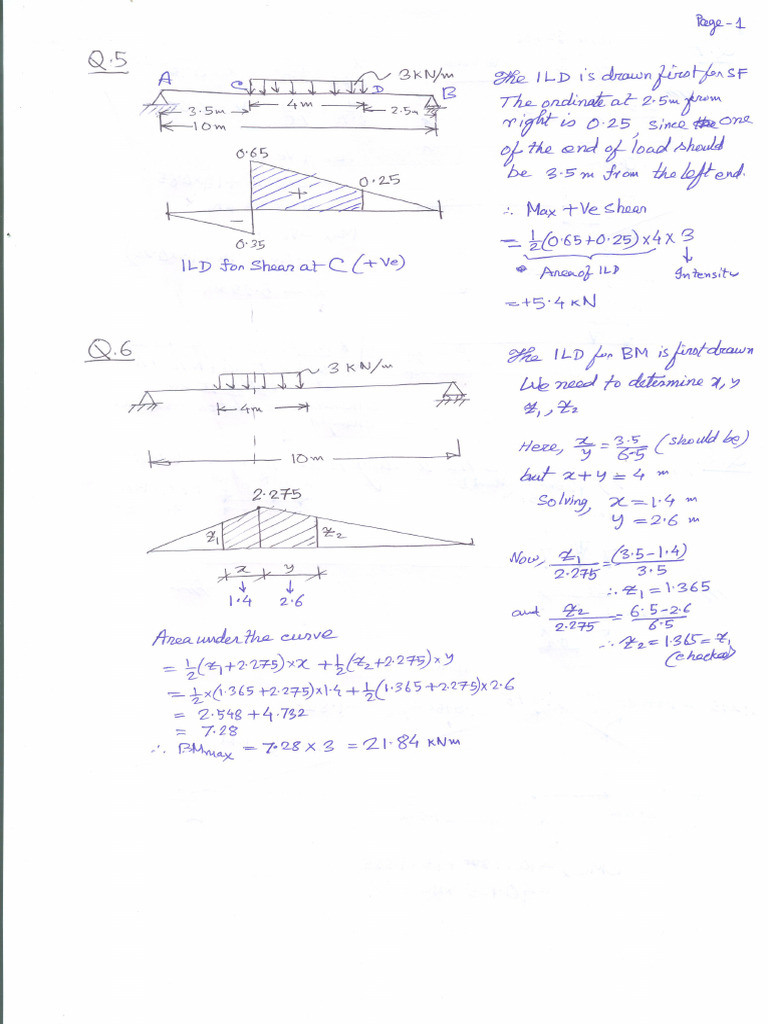 Page-1
Q.5
A
C
3KN/m
D
B
3.5m
4m
2.5m
10m
0.65
0.25
+
−
0.35
ILD for Shear at C (+ve)
The ILD is drawn first for SF
The ordinate at 2.5m from
right is 0.25, since one
of the end of load should
be 3.5m from the left end.
∴ Max +ve shear
= 1/2(0.65+0.25)×4×3
Area of ILD
Intensity
=+5.4 KN
Q.6
3 KN/m
4m
10m
2.275
z₁
z₂
x
y
1.4
2.6
The ILD for BM is first drawn
We need to determine x, y
z₁, z₂
Here, x/y = 3.5/6.5 (should be)
but x+y = 4 m
Solving, x = 1.4 m
y = 2.6 m
Now, z₁/2.275 = (3.5-1.4)/3.5
∴ z₁ = 1.365
and z₂/2.275 = 6.5-2.6/6.5
∴ z₂ = 1.365 = z₁
(checked)
Area under the curve
= 1/2(z₁+2.275)×x + 1/2(z₂+2.275)×y
= 1/2×(1.365+2.275)×1.4 + 1/2(1.365+2.275)×2.6
= 2.548 + 4.732
= 7.28
∴ BMmax = 7.28 × 3 = 21.84 KNm